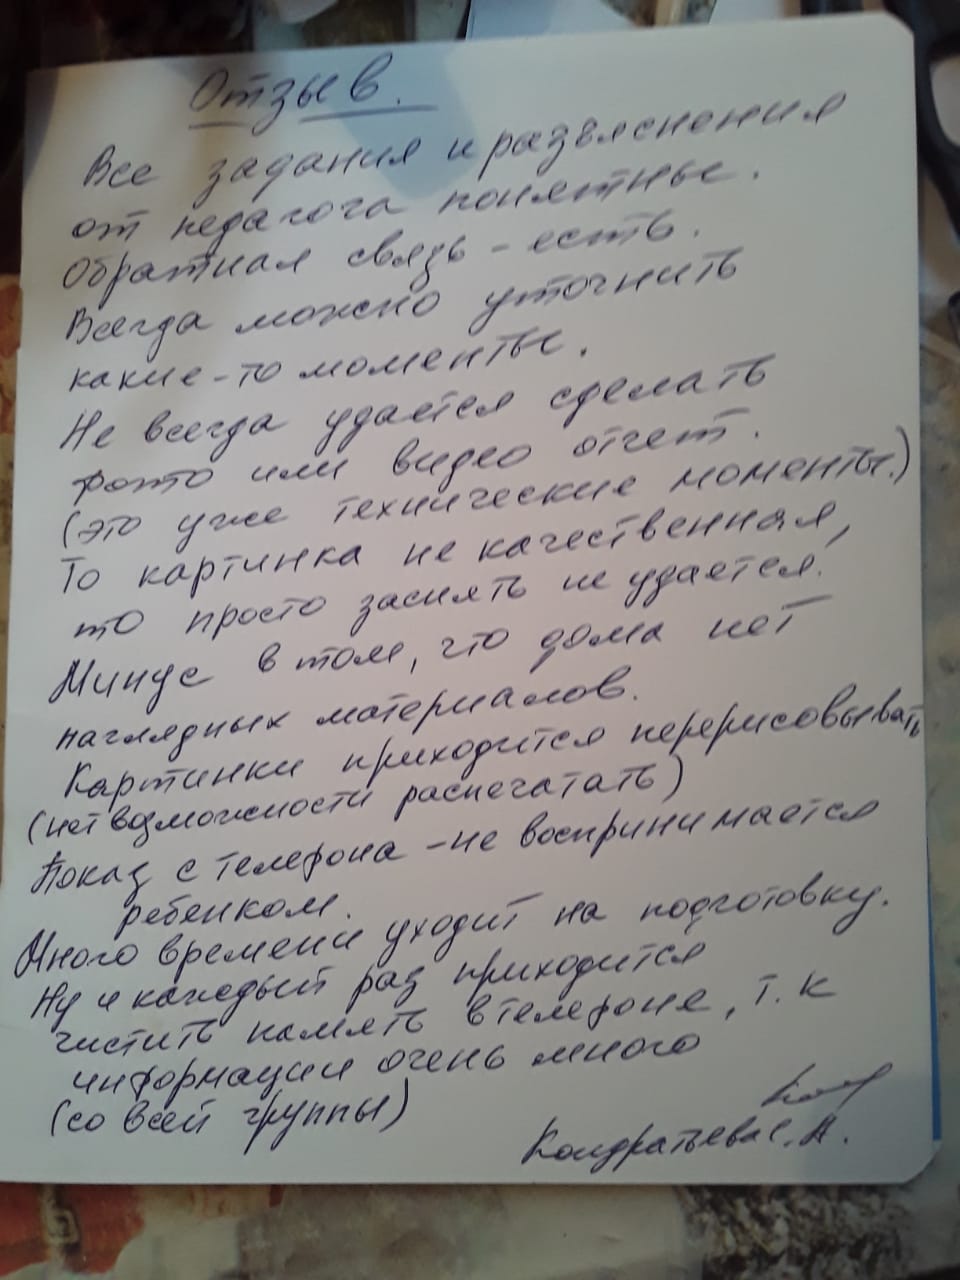 Отзыв.
Все задания и разъяснения
от педагога понятны.
Обратная связь - есть.
Всегда можно уточнить
какие-то моменты.
Не всегда удается сделать
фото или видео отчет.
(это уже технические моменты.)
То картинка не качественная,
то просто заснять не удается.
Минус в том, что дома нет
наглядных материалов.
Картинки приходится перерисовывать
(нет возможности распечатать)
Показ с телефона - не воспринимается
ребенком.
Много времени уходит на подготовку.
Ну и каждый раз приходится
чистить память в телефоне, т.к
информации очень много
(со всей группы)
Кондратьева С.А.